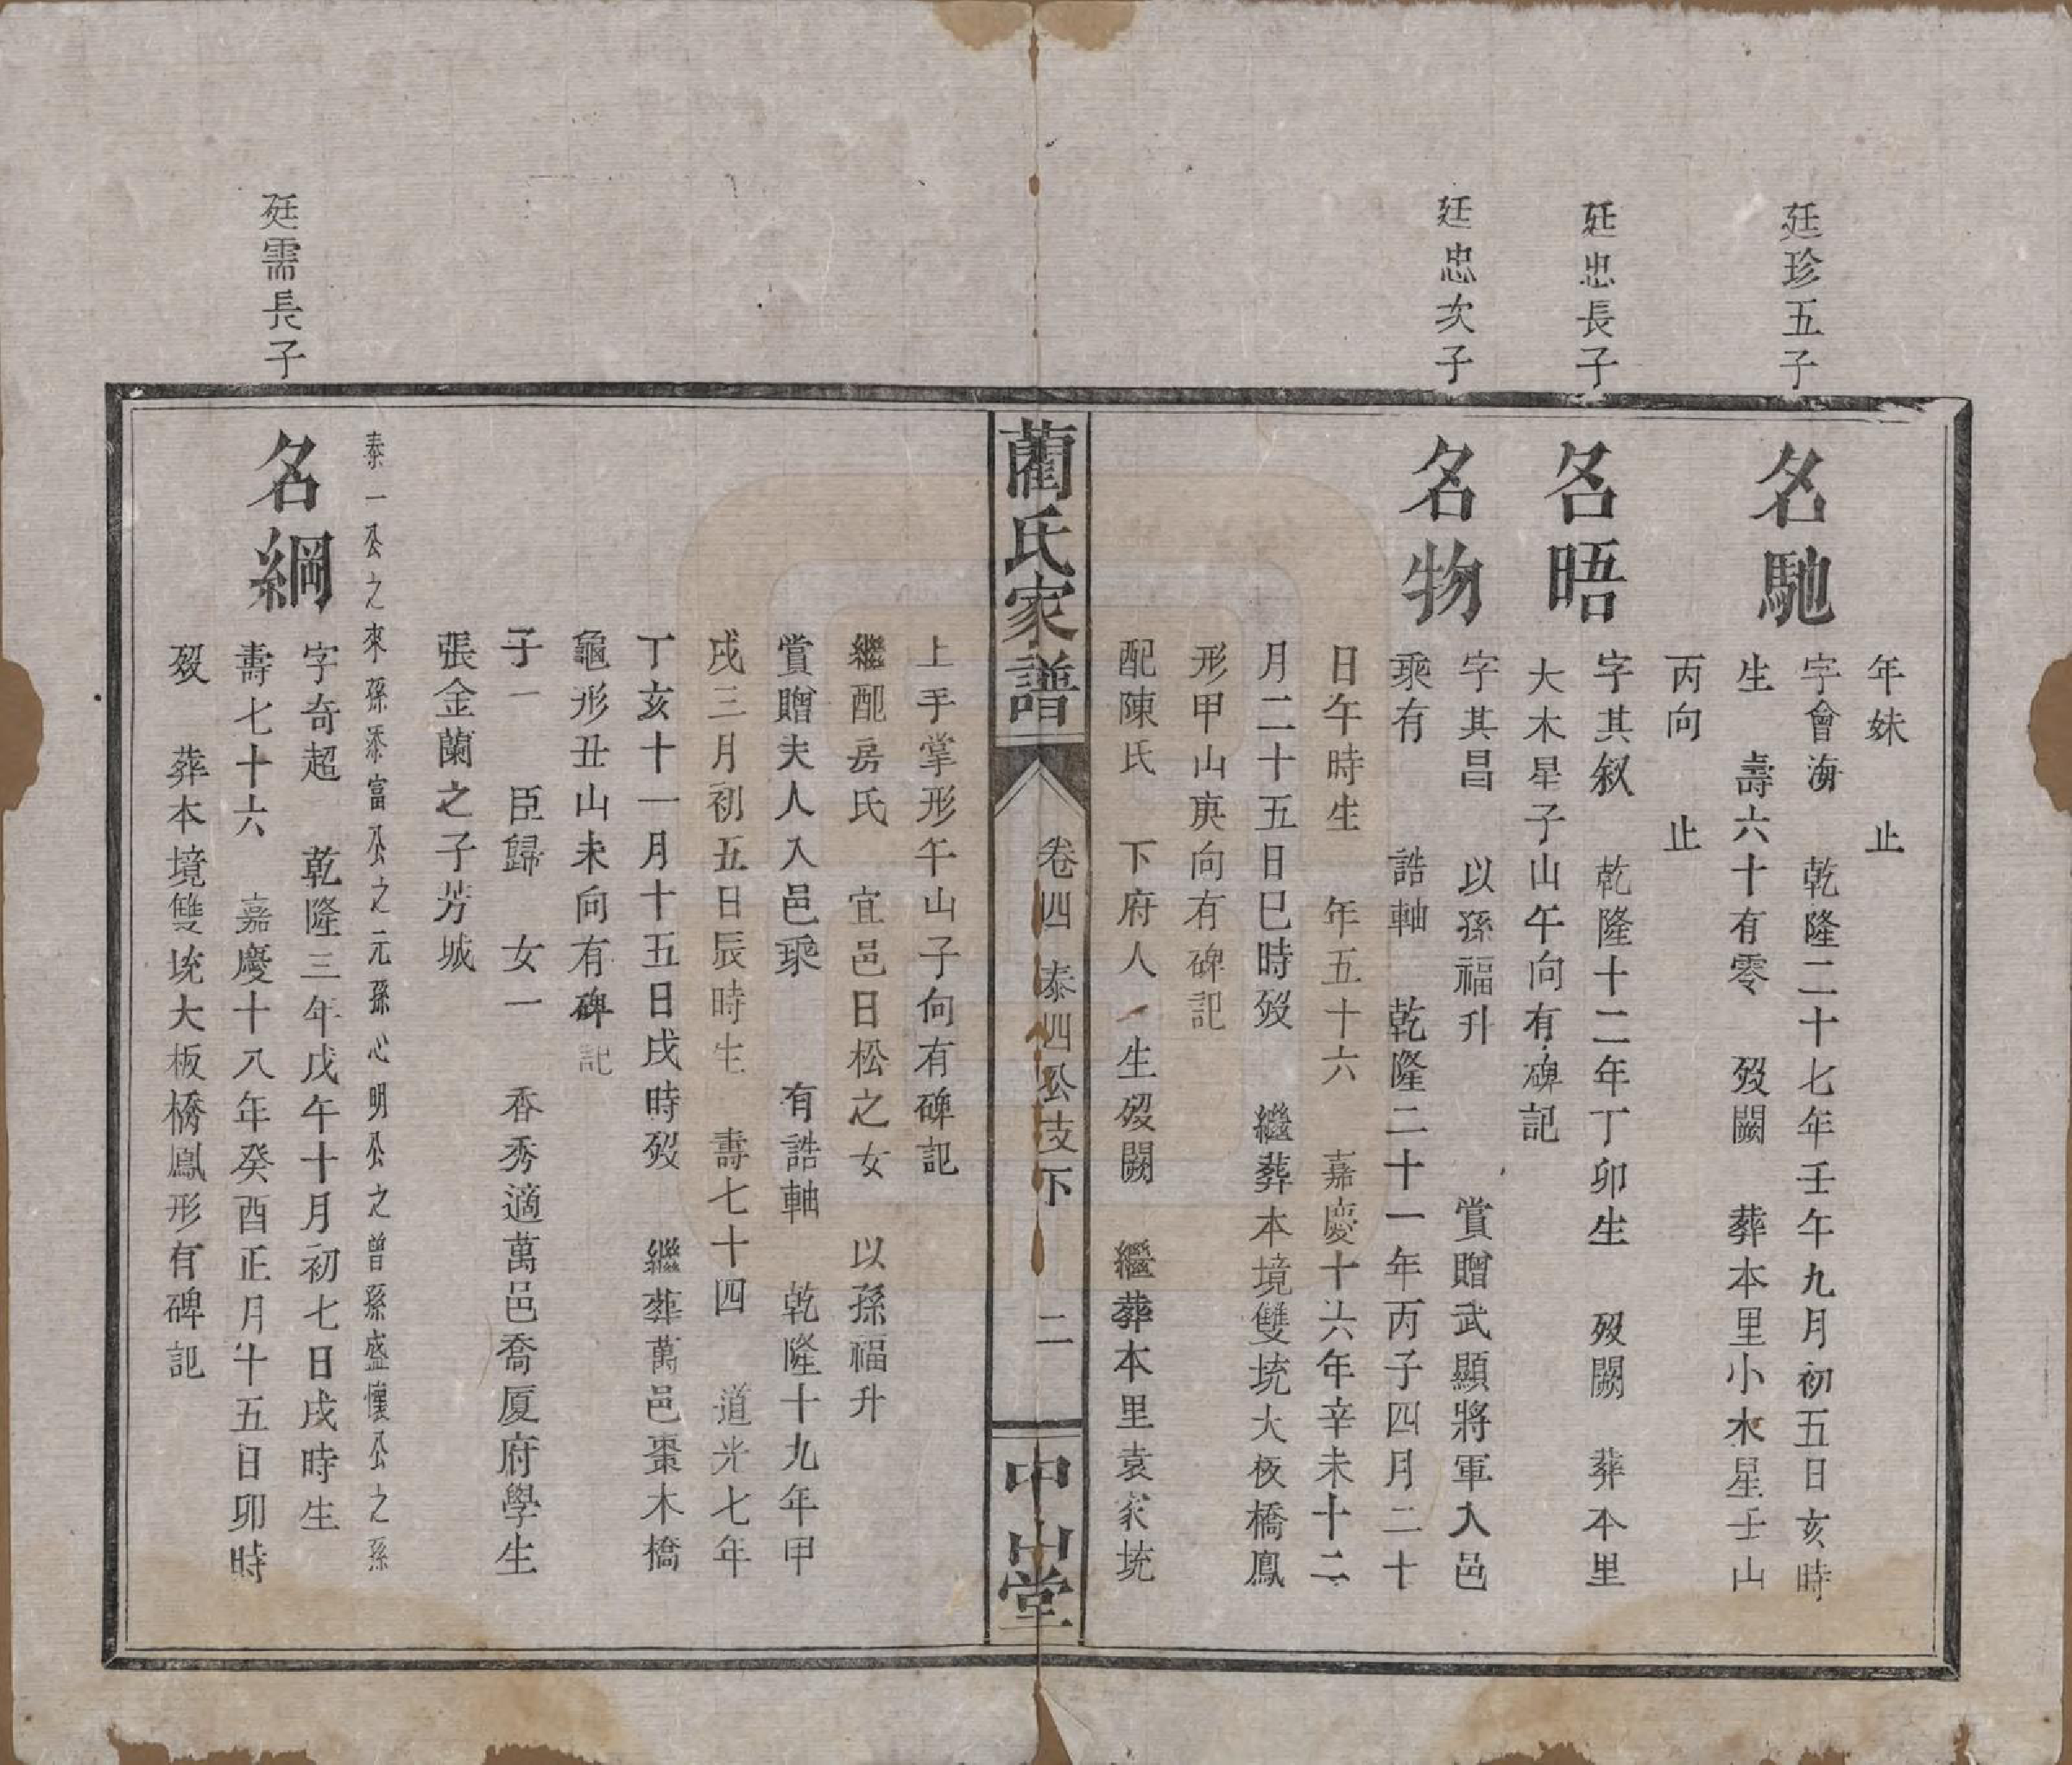 年妹　止
廷珍五子
名馳
字會海　乾隆二十七年壬午九月初五日亥時
生　壽六十有零　歿闕　葬本里小水星壬山
丙向　止
廷忠長子
名晤
字其叙　乾隆十二年丁卯生　歿闕　葬本里
大木星子山午向有碑記
廷忠次子
名物
字其昌　以孫福升　賞贈武顯將軍入邑
乘有　誥軸　乾隆二十一年丙子四月二十
日午時生　年五十六　嘉慶十六年辛未十二
月二十五日巳時歿　繼葬本境雙𡊢大板橋鳳
形甲山庚向有碑記
配陳氏　下府人　生歿闕　繼葬本里袁家𡊢
藺氏家譜　卷四　泰四公支下　二　中山堂
上手掌形午山子向有碑記
繼配房氏　宜邑日松之女　以孫福升
賞贈夫人入邑乘　有誥軸　乾隆十九年甲
戌三月初五日辰時生　壽七十四　道光七年
丁亥十一月十五日戌時歿　繼葬萬邑棗木橋
龜形丑山未向有碑記
子一　臣歸　女一　香秀適萬邑喬廈府學生
張金蘭之子芳城
泰一公之來孫添富公之元孫心明公之曾孫盛懷公之孫
廷需長子
名綱
字奇超　乾隆三年戊午十月初七日戌時生
壽七十六　嘉慶十八年癸酉正月十五日卯時
歿　葬本境雙𡊢大板橋鳳形有碑記